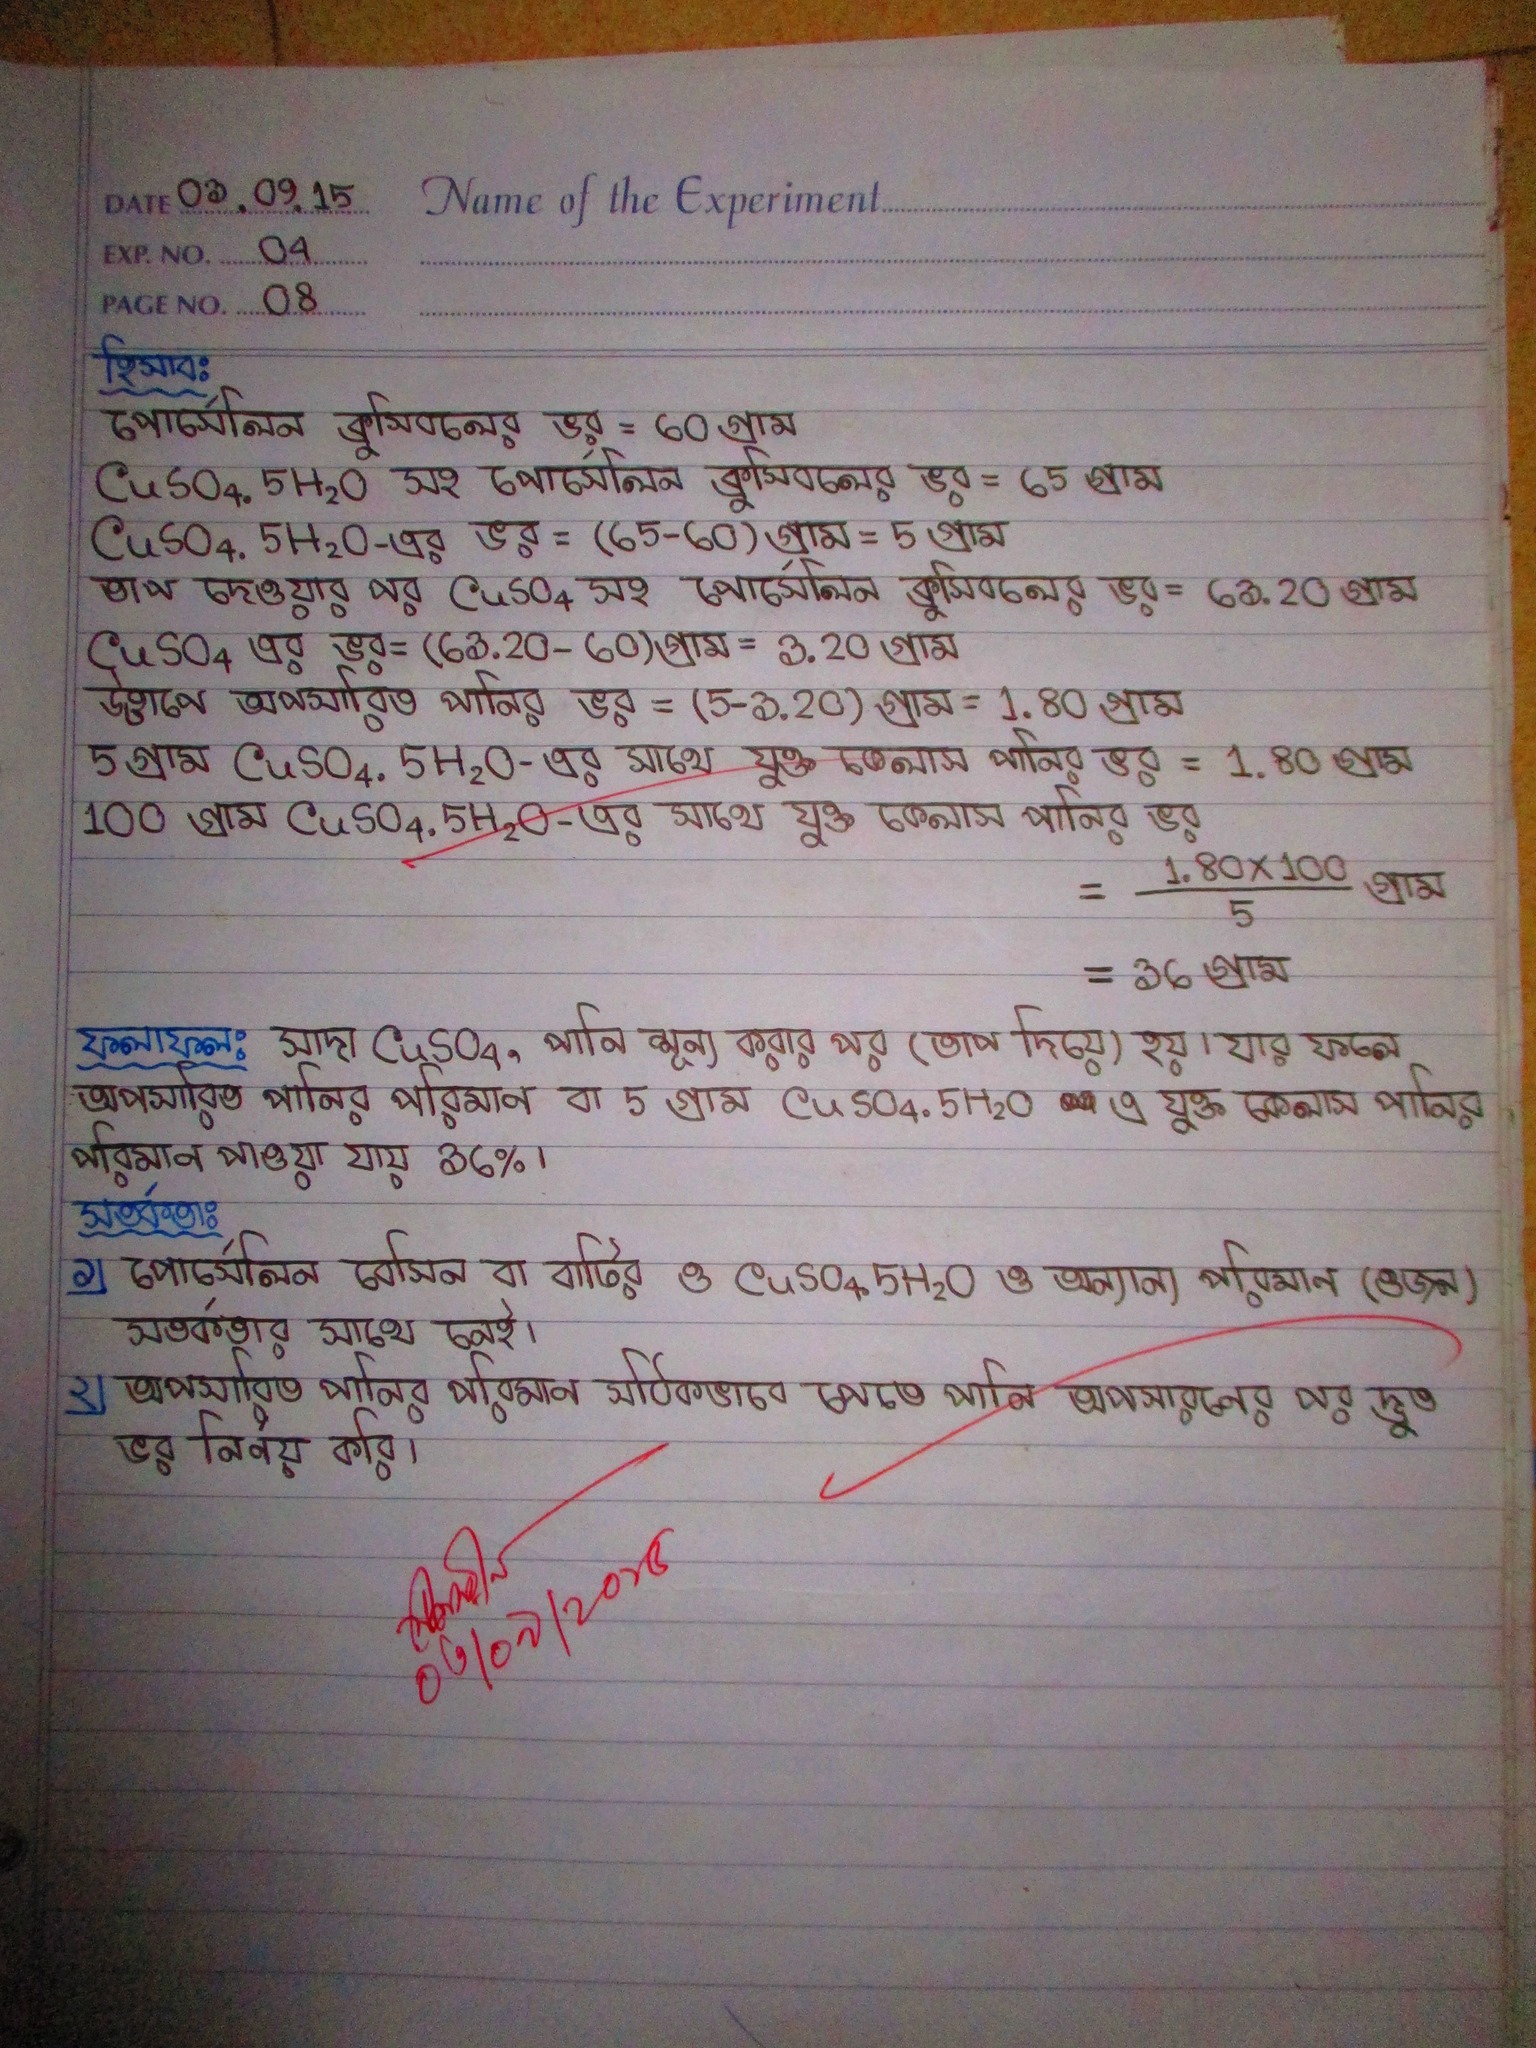 DATE 03.09.15 Name of the Experiment
EXP. NO. 04
PAGE NO. 08
হিসাবঃ
পোর্সেলিন ক্রুসিবলের ভর = 60 গ্রাম
CuSO4.5H2O সহ পোর্সেলিন ক্রুসিবলের ভর = 65 গ্রাম
CuSO4.5H2O-এর ভর = (65-60) গ্রাম = 5 গ্রাম
তাপ দেওয়ার পর CuSO4 সহ পোর্সেলিন ক্রুসিবলের ভর = 63.20 গ্রাম
CuSO4 এর ভর = (63.20-60) গ্রাম = 3.20 গ্রাম
উত্তাপে অপসারিত পানির ভর = (5-3.20) গ্রাম = 1.80 গ্রাম
5 গ্রাম CuSO4.5H2O-এর সাথে যুক্ত কেলাস পানির ভর = 1.80 গ্রাম
100 গ্রাম CuSO4.5H2O-এর সাথে যুক্ত কেলাস পানির ভর
= 1.80×100 / 5 গ্রাম
= 36 গ্রাম
ফলাফলঃ সাদা CuSO4, পানি শূন্য করার পর (তাপ দিয়ে) হয়। যার ফলে
অপসারিত পানির পরিমান বা 5 গ্রাম CuSO4.5H2O এ যুক্ত কেলাস পানির
পরিমান পাওয়া যায় 36%।
সতর্কতাঃ
১) পোর্সেলিন বেসিন বা বাটির ও CuSO4.5H2O ও অন্যান্য পরিমান (ওজন)
সতর্কতার সাথে নেই।
২) অপসারিত পানির পরিমান সঠিকভাবে পেতে পানি অপসারনের পর দ্রুত
ভর নির্ণয় করি।
০৩/০৯/২০১৫